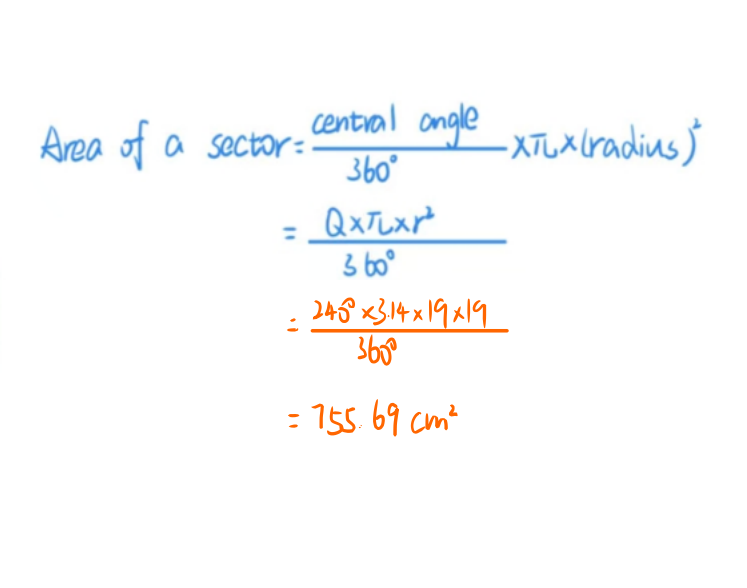 Area of a sector = central angle / 360° × π × (radius)²
= Q × π × r² / 360°
= 240° × 3.14 × 19 × 19 / 360°
= 755.69 cm²